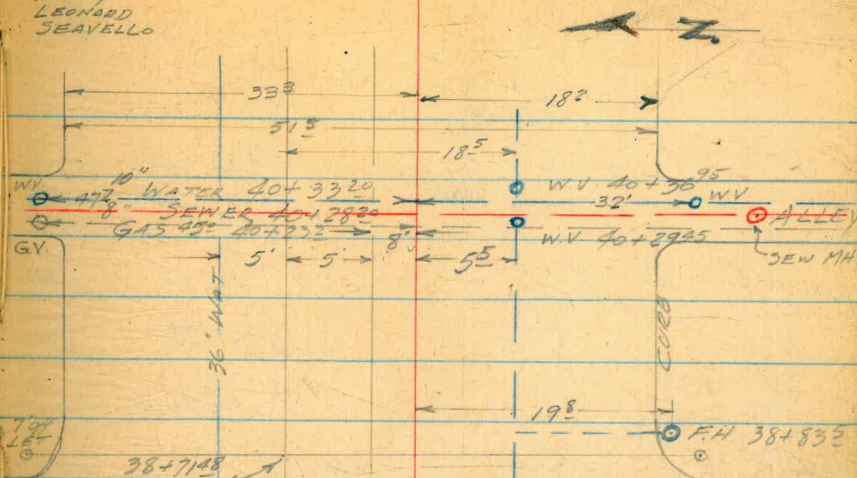 LEONARD
SEAVELLO
Z.
33³
18²
51⁵
18⁵
W.V.
47²
10" WATER 40+33²⁰
W.V 40+36⁹⁵
32'
W.V
8" SEWER 40+28²⁰
ALLEY
GAS 45⁰ 40+23²
8'
W.V 40+29⁴⁵
G.V.
5'
5'
5⁵
SEW MH
36" WAT
CURB
19⁸
F.H 38+83⁵
LET
38+71⁴⁸